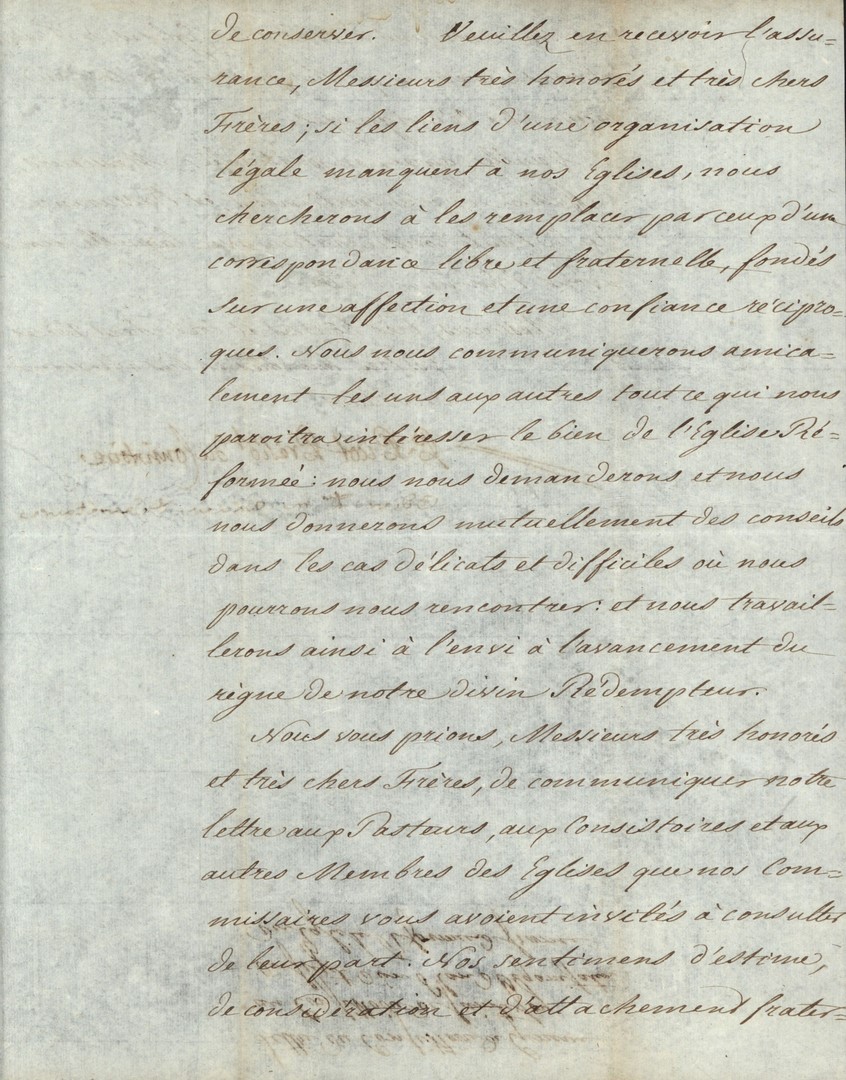 de conserver. Veuillez en recevoir l'assu-
rance, Messieurs très honorés et très chers
Frères; si les liens d'une organisation
légale manquent à nos Eglises, nous
chercherons à les remplacer par ceux d'une
correspondance libre et fraternelle, fondés
sur une affection et une confiance récipro=
ques. Nous nous communiquerons amica=
lement les uns aux autres tout ce qui nous
paroitra intéresser le bien de l'Eglise Ré=
formée: nous nous demanderons et nous
nous donnerons mutuellement des conseils
dans les cas délicats et difficiles où nous
pourrons nous rencontrer: et nous travail=
lerons ainsi à l'envi à l'avancement du
règne de notre divin Rédempteur.
Nous vous prions, Messieurs très honorés
et très chers Frères, de communiquer notre
lettre aux Pasteurs, aux Consistoires et aux
autres Membres des Eglises que nos Com=
missaires vous avoient invités à consulter
de leur part. Nos sentimens d'estime,
de considération et d'attachement frater=